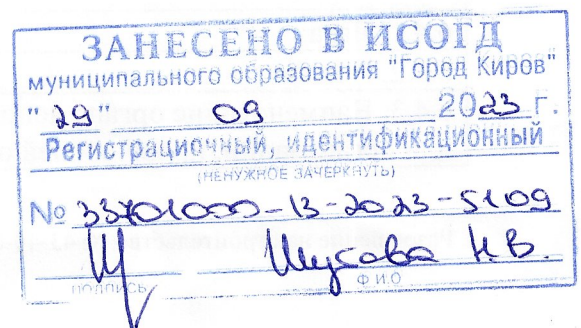 ЗАНЕСЕНО В ИСОГД
муниципального образования "Город Киров"
"29" 09 2023 г.
Регистрационный, идентификационный
(НЕНУЖНОЕ ЗАЧЕРКНУТЬ)
№ 33701000-13-2023-5109
Шусова Н.В.
ПОДПИСЬ Ф.И.О